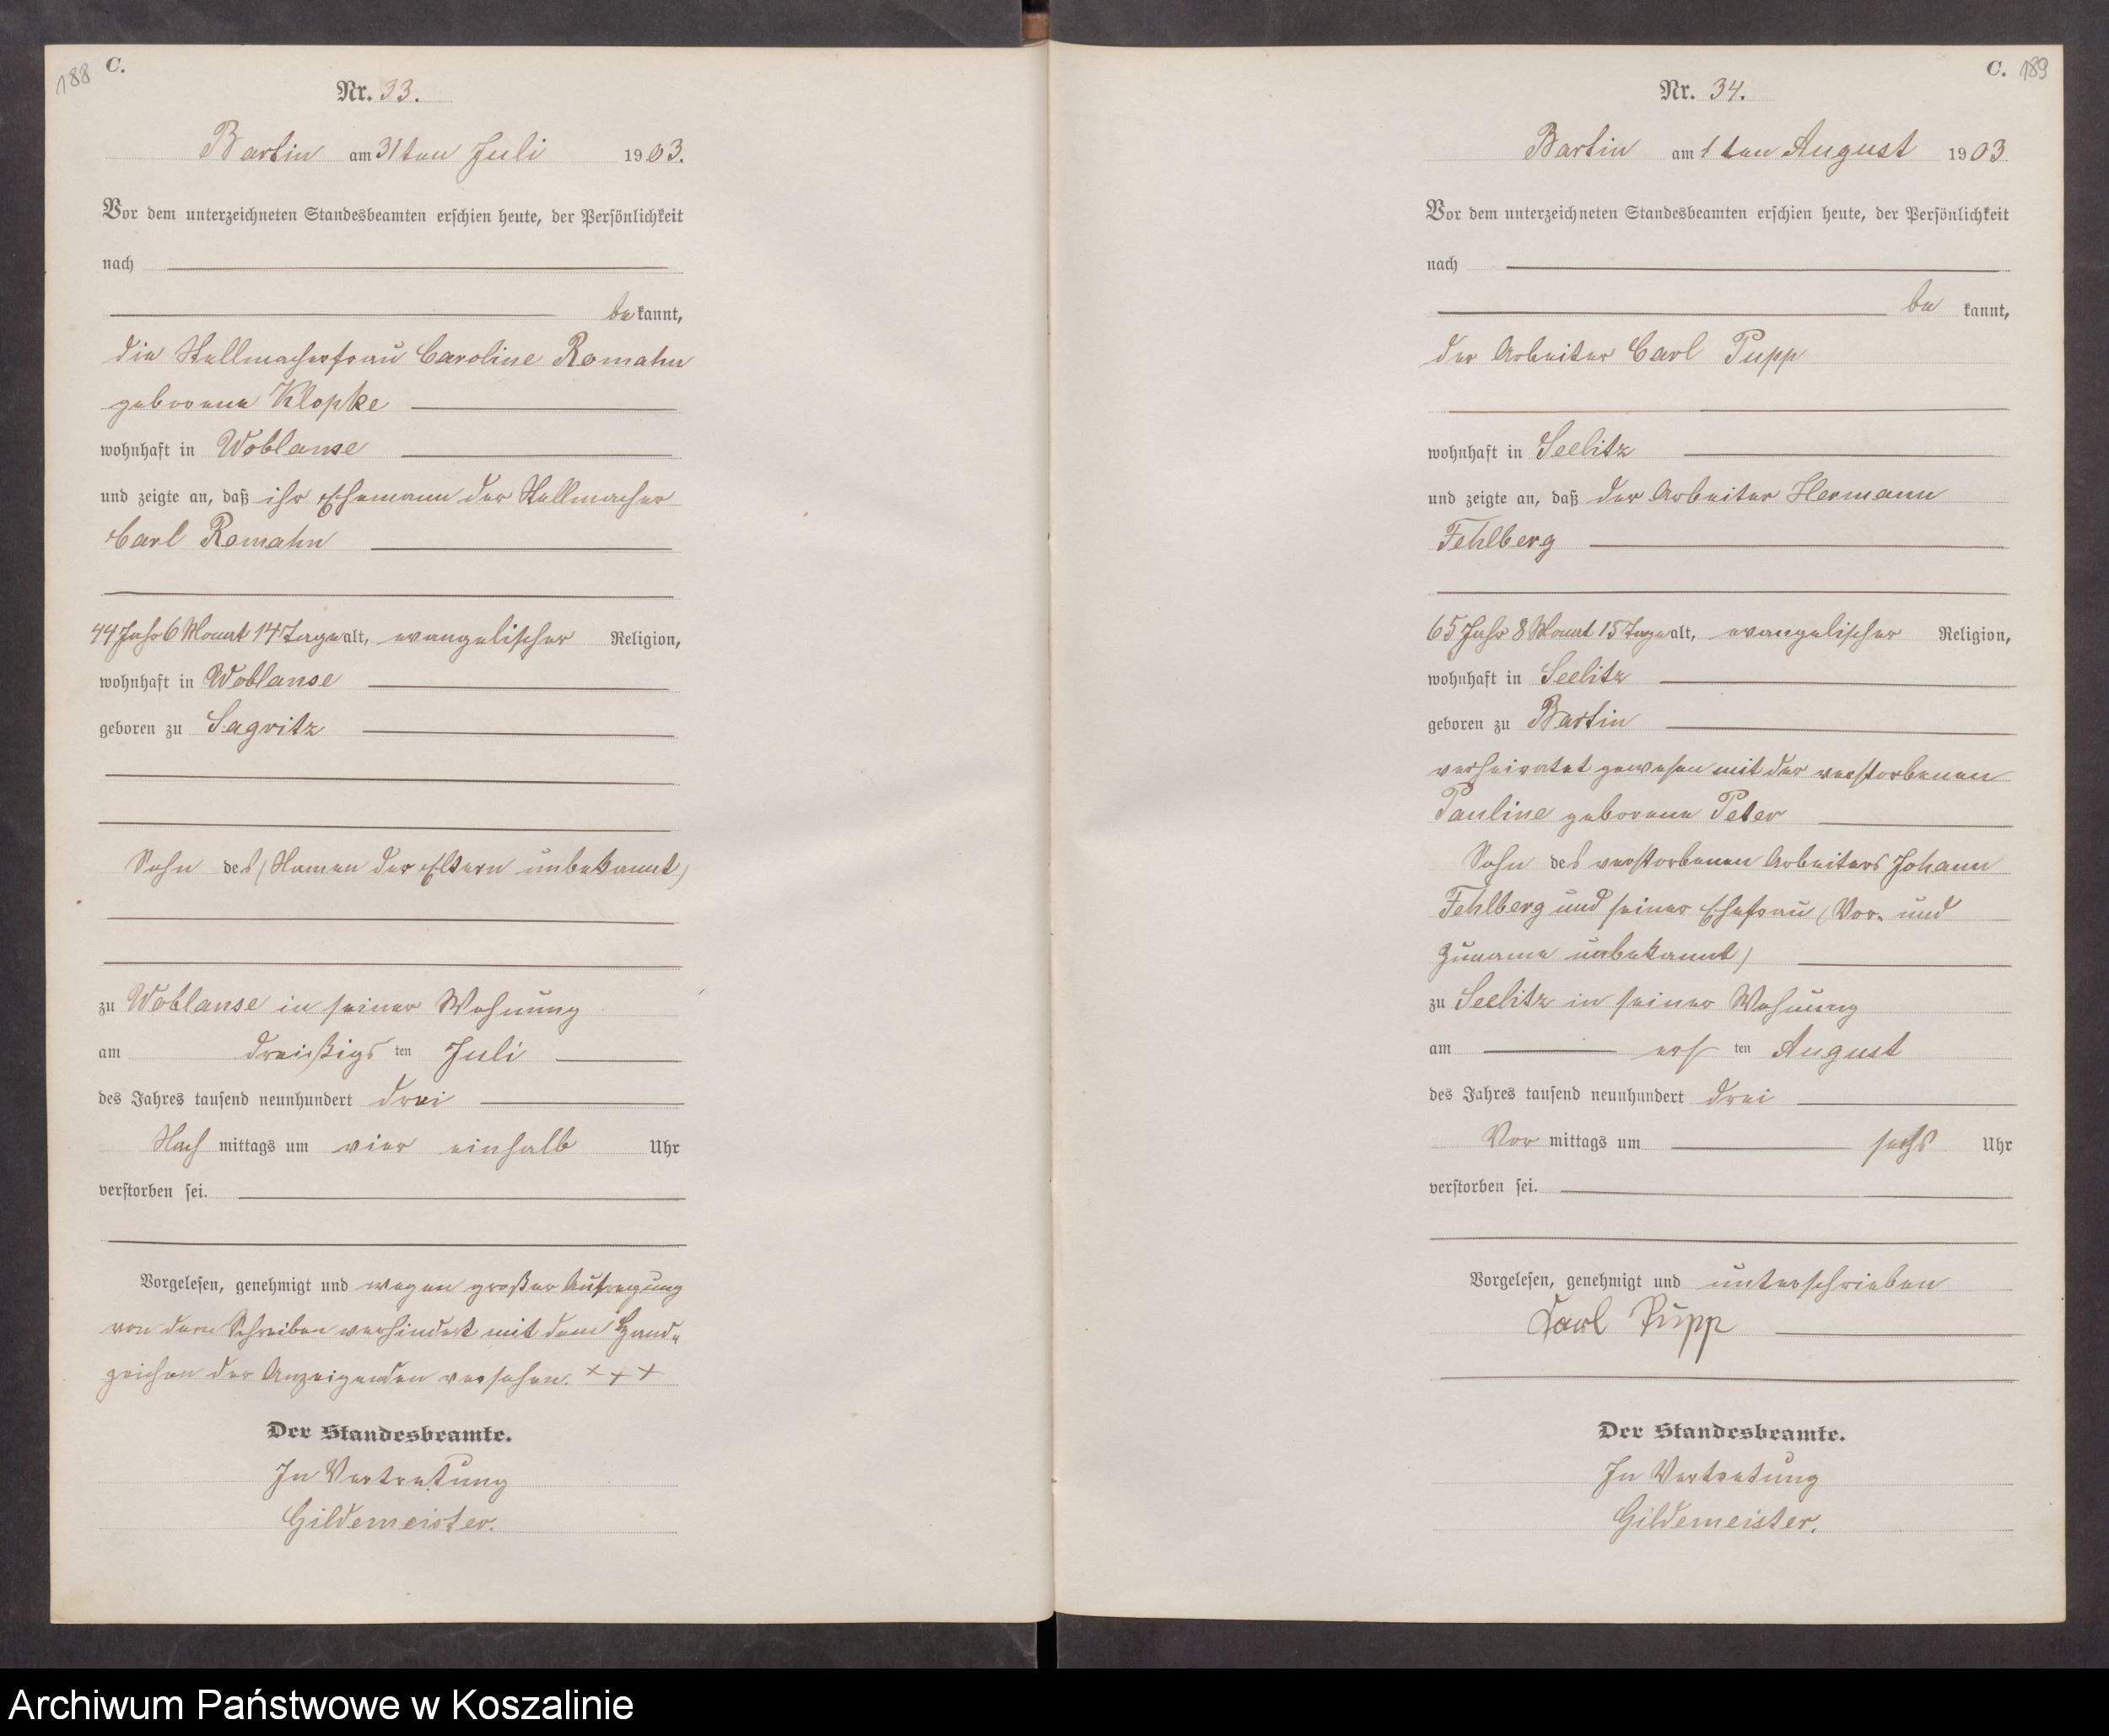 188 C.
Nr. 33.
Bartin am 31ten Juli 1903.
Vor dem unterzeichneten Standesbeamten erschien heute, der Persönlichkeit
nach
bekannt,
die Stellmacherfrau Caroline Romahn
geborene Klopke
wohnhaft in Woblanse
und zeigte an, daß ihr Ehemann der Stellmacher
Carl Romahn
44 Jahr 6 Monat 14 Tage alt, evangelischer Religion,
wohnhaft in Woblanse
geboren zu Sagritz
Sohn des (Namen der Eltern unbekannt)
zu Woblanse in seiner Wohnung
am dreißigsten Juli
des Jahres tausend neunhundert drei
Nachmittags um vier einhalb Uhr
verstorben sei.
Vorgelesen, genehmigt und wegen großer Aufregung
von dem Schreiben verhindert mit dem Hand-
zeichen der Anzeigenden versehen. + + +
Der Standesbeamte.
In Vertretung
Gildemeister.
C. 189
Nr. 34.
Bartin am 1ten August 1903
Vor dem unterzeichneten Standesbeamten erschien heute, der Persönlichkeit
nach
bekannt,
der Arbeiter Carl Pupp
wohnhaft in Seelitz
und zeigte an, daß der Arbeiter Hermann
Fehlberg
65 Jahr 8 Monat 15 Tage alt, evangelischer Religion,
wohnhaft in Seelitz
geboren zu Bartin
verheiratet gewesen mit der verstorbenen
Pauline geborene Peter
Sohn des verstorbenen Arbeiters Johann
Fehlberg und seiner Ehefrau (Vor- und
Zuname unbekannt)
zu Seelitz in seiner Wohnung
am ersten August
des Jahres tausend neunhundert drei
Vormittags um sechs Uhr
verstorben sei.
Vorgelesen, genehmigt und unterschrieben
Karl Pupp
Der Standesbeamte.
In Vertretung
Gildemeister.
Archiwum Państwowe w Koszalinie